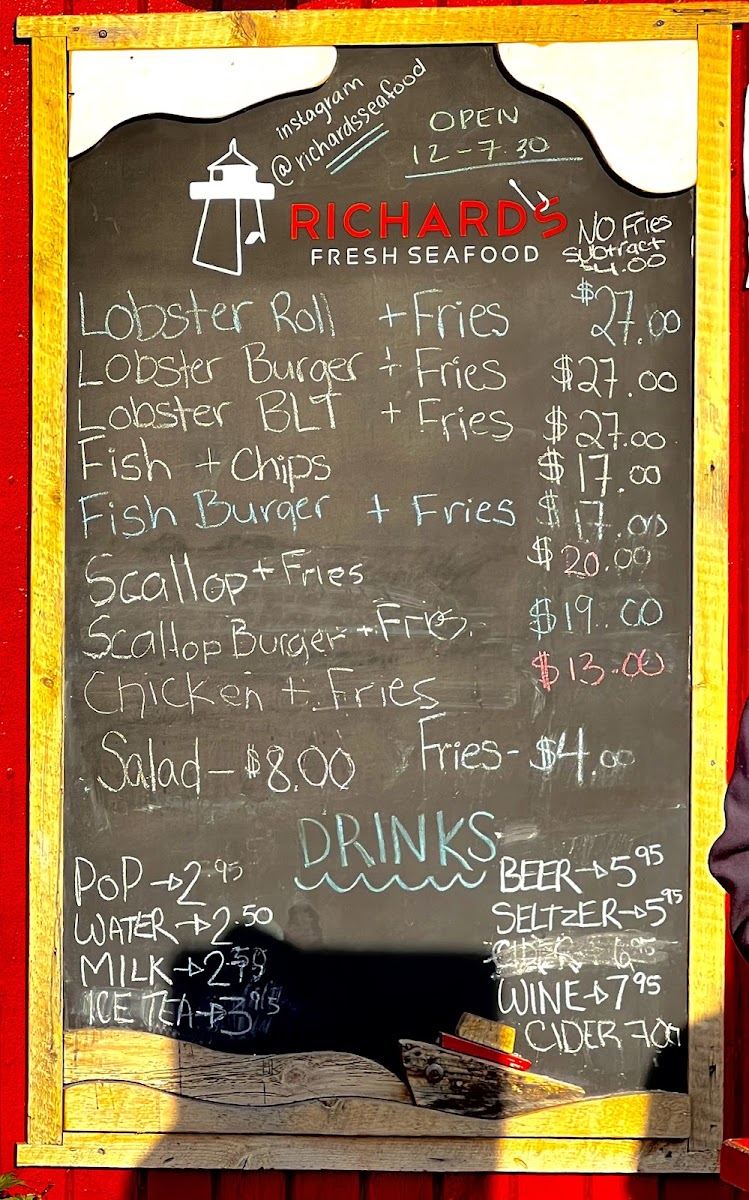 instagram
@richardsseafood
OPEN
12-7.30
RICHARDS
FRESH SEAFOOD
NO Fries
subtract
$4.00
Lobster Roll + Fries $27.00
Lobster Burger + Fries $27.00
Lobster BLT + Fries $27.00
Fish + Chips $17.00
Fish Burger + Fries $17.00
Scallop + Fries $20.00
Scallop Burger + Fries $19.00
Chicken + Fries $13.00
Salad - $8.00 Fries - $4.00
DRINKS
POP → 2.95
WATER → 2.50
MILK →
ICE TEA → 3.95
BEER → 5.95
SELTZER → 5.95
WINE → 7.95
CIDER 7.00